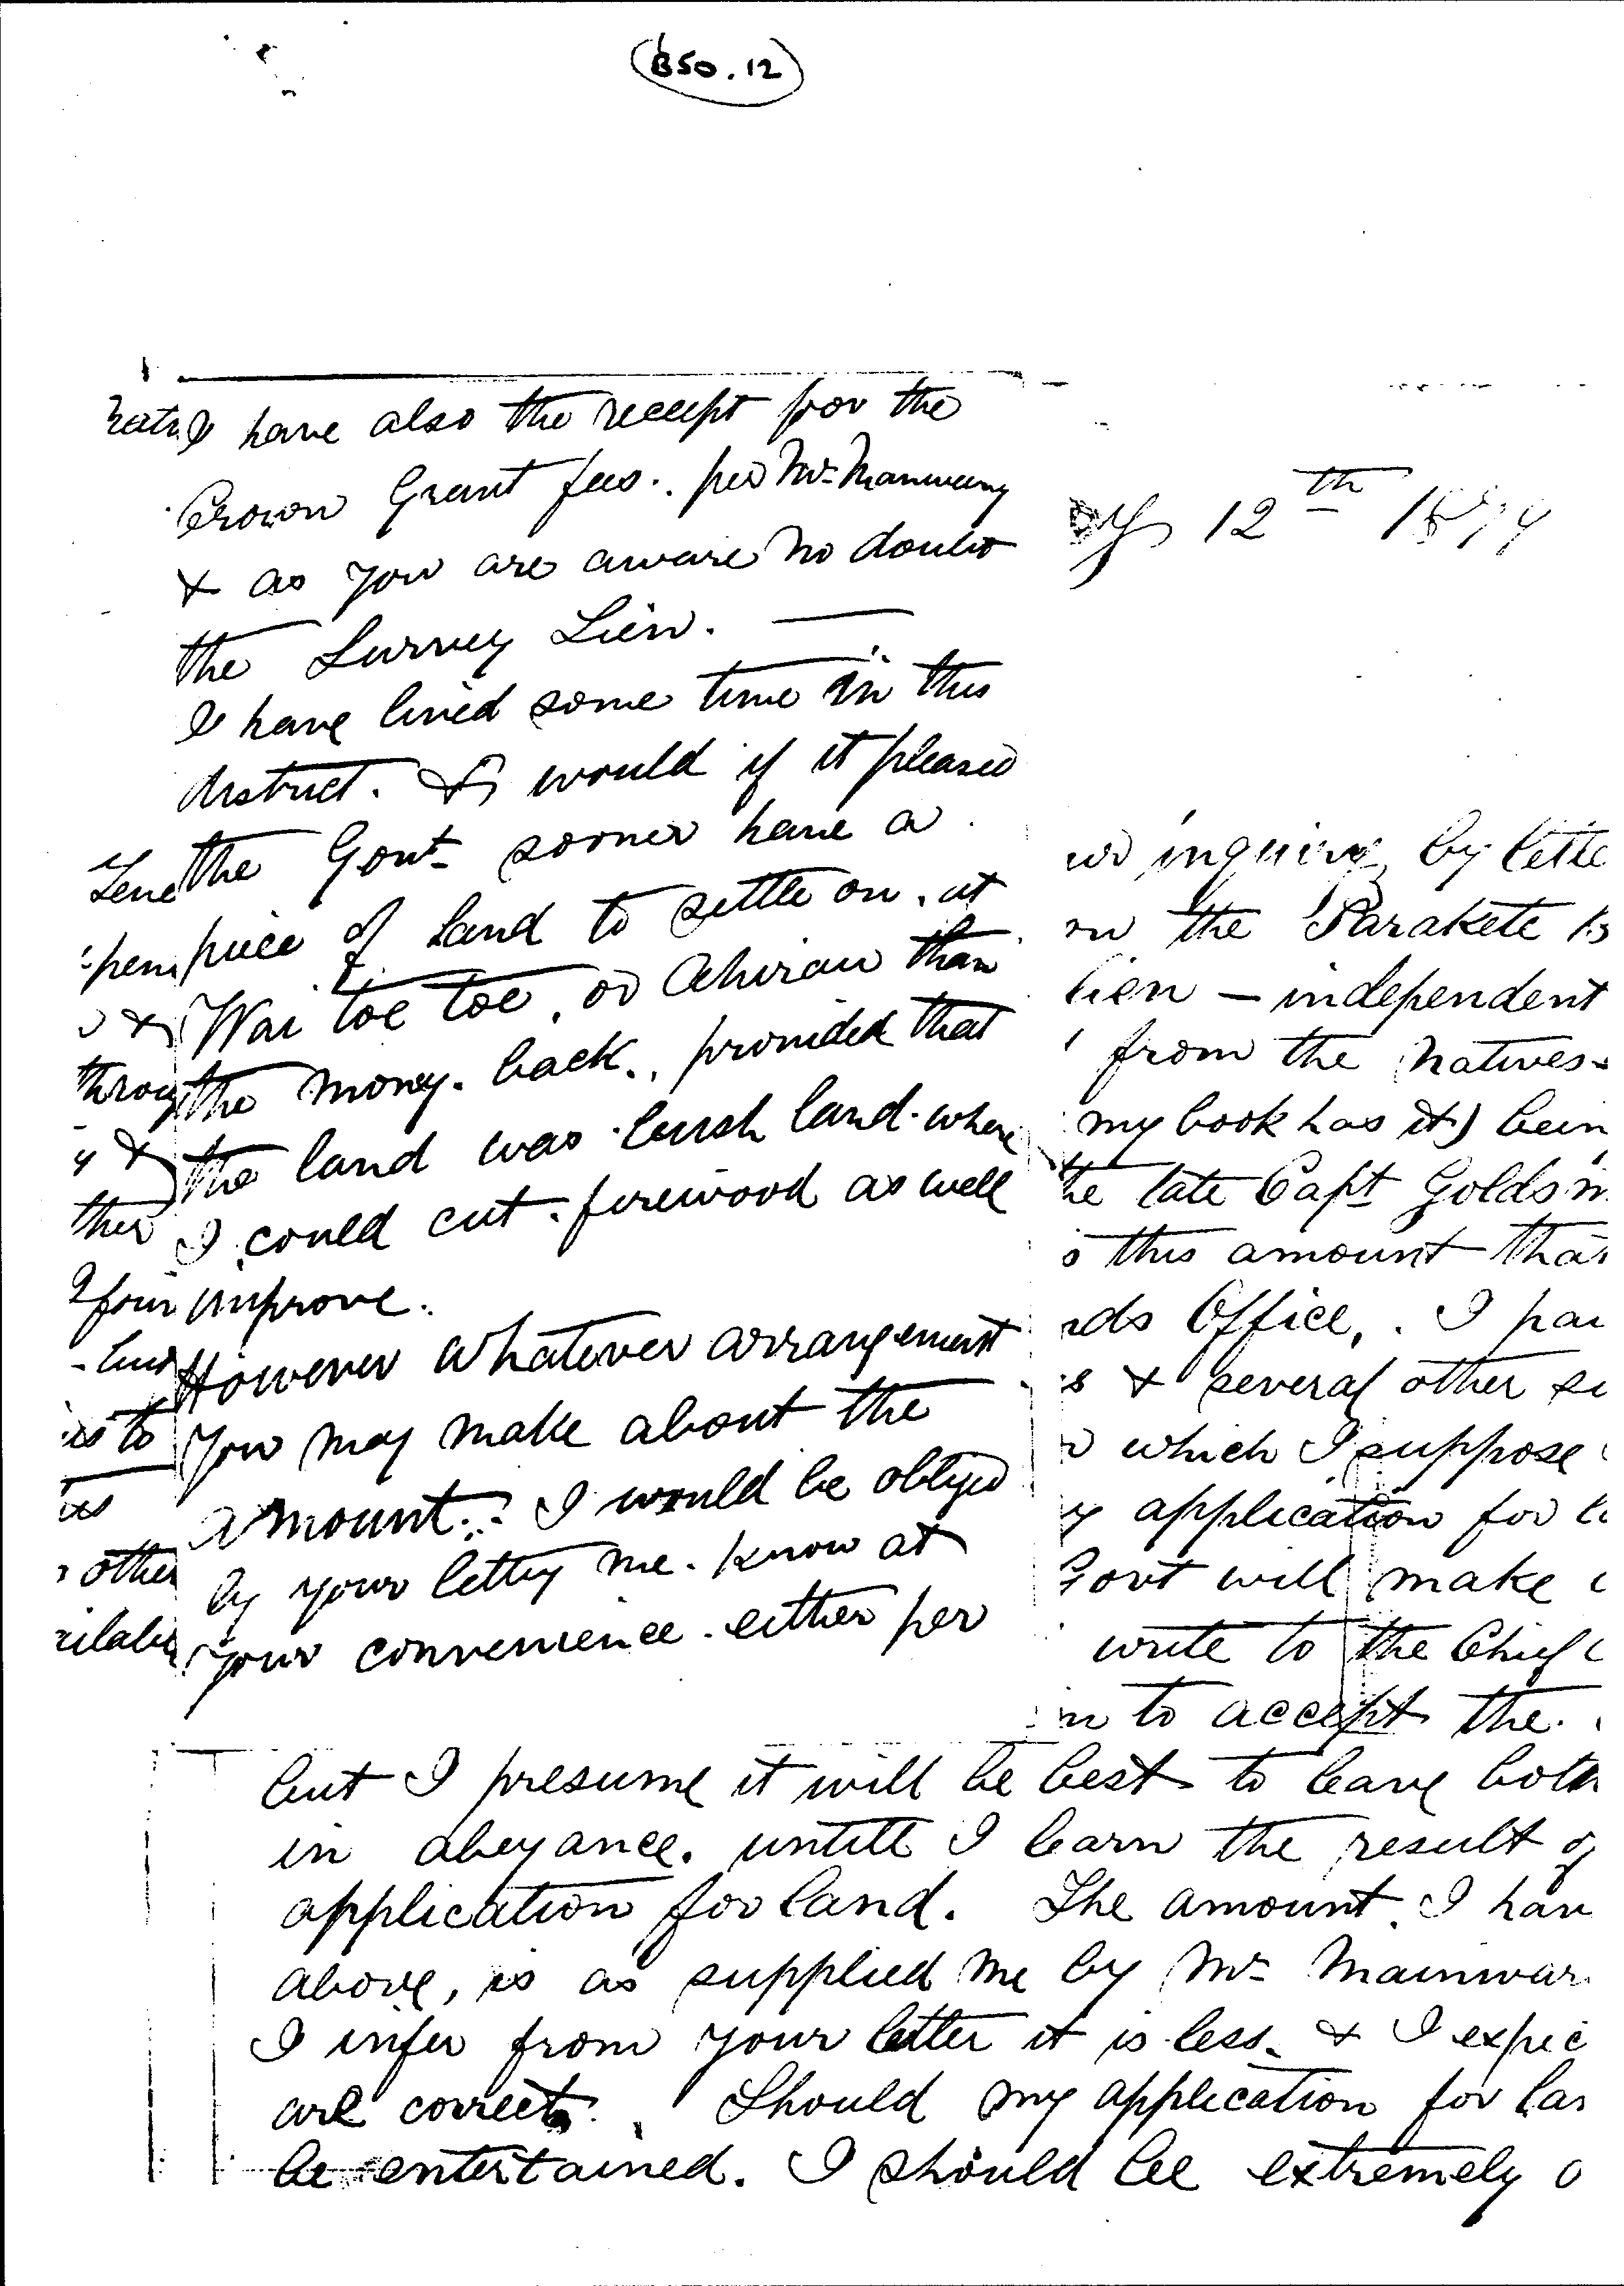 B50.12
I have also the receipt for the
Crown Grant fees. per Mr
& as you are aware no doubt
the Survey Lien. —
I have lived some time in this
district. & would if it pleased
the Govt sooner have a
piece of land to settle on. at
Wai toe toe, or Ahirau than
the money. back., provided that
the land was bush land. where
I could cut. firewood as well
improve.
However whatever arrangement
you may make about the
amount. I would be obliged
by your letting me. know at
your convenience. either per
throug
ther
is to
other
12th 1874
inquiry by lette
the Parakete
lien — independent
from the Natives-
my book has it) bein
the late Capt Goldsm
this amount that
nds Office,. I pai
& several other su
which I suppose
application for la
Govt will make
write to the Chief
to accept the.
but I presume it will be best to leave both
in abeyance. untill I learn the result of
application for land. The amount. I hav
above, is as supplied me by Mr Mainwar
I infer from your letter it is less. & I expec
are correct. Should my application for lan
be entertained. I should be extremely o